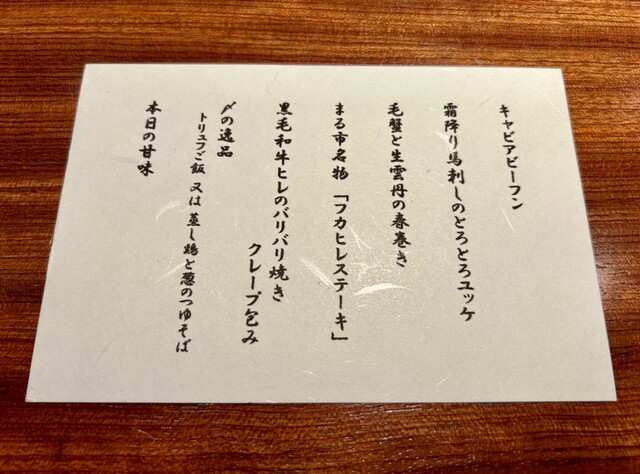 キャビアビーフン
霜降り馬刺しのとろとろユッケ
毛蟹と生雲丹の春巻き
まる市名物「フカヒレステーキ」
黒毛和牛ヒレのバリバリ焼き
クレープ包み
〆の逸品
トリュフご飯 又は 蒸し鶏と葱のつゆそば
本日の甘味